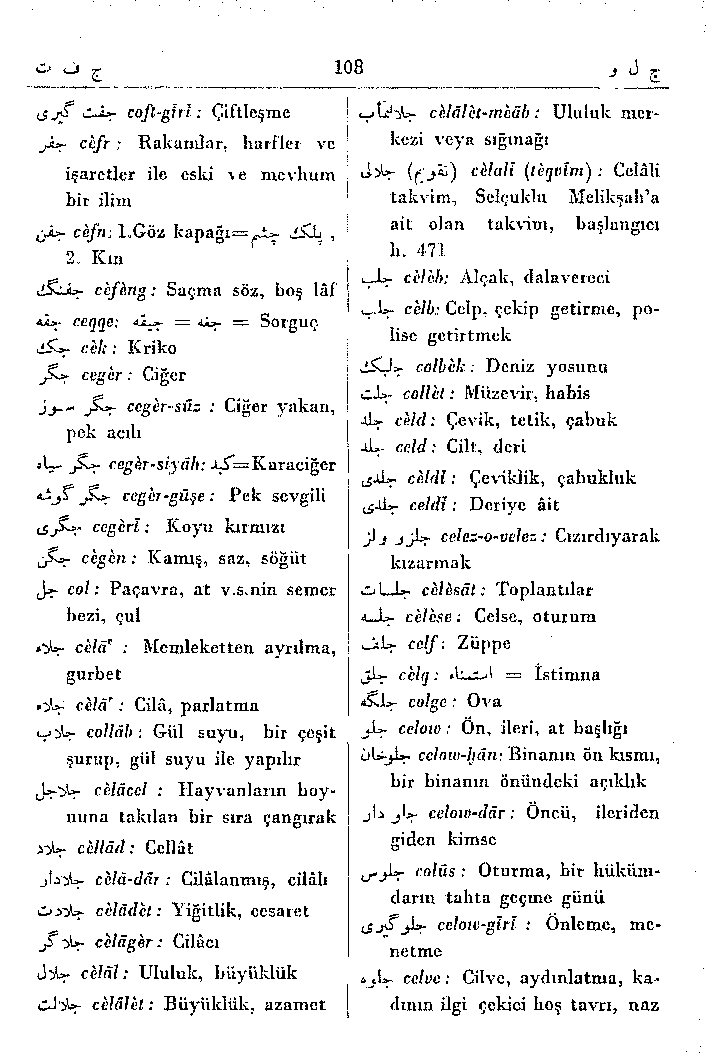 ج ف ت 108 ج ل و
جفت گیری coft-gîrî : Çiftleşme
جفر cèfr : Rakamlar, harfler ve
işaretler ile eski ve mevhum
bir ilim
جفن cèfn: 1.Göz kapağı=پلك چشم ,
2. Kın
جفنگ cèfèng : Saçma söz, boş lâf
جقه ceqqe: جیقه = جغه = Sorguç
جك cèk : Kriko
جگر cegèr : Ciğer
جگر سوز cegèr-sûz : Ciğer yakan,
pek acılı
جگر سیاه cegèr-siyāh: کبد=Karaciğer
جگر گوشه cegèr-gûşe : Pek sevgili
جگری cegèrî : Koyu kırmızı
جگن cègèn : Kamış, saz, söğüt
جل col : Paçavra, at v.s.nin semer
bezi, çul
جلاء cèlā' : Memleketten ayrılma,
gurbet
جلاء cèlā' : Cilâ, parlatma
جلاب collāb : Gül suyu, bir çeşit
şurup, gül suyu ile yapılır
جلاجل cèlācel : Hayvanların boy-
nuna takılan bir sıra çangırak
جلاد cèllād : Cellât
جلادار cèlā-dār : Cilâlanmış, cilâlı
جلادت cèlādèt : Yiğitlik, cesaret
جلاگر cèlāgèr : Cilâcı
جلال cèlāl : Ululuk, büyüklük
جلالت cèlālèt : Büyüklük, azamet
جلالتمآب cèlālèt-mèāb : Ululuk mer-
kezi veya sığınağı
جلالی (تقویم) cèlalî (tèqvîm) : Celâli
takvim, Selçuklu Melikşah'a
ait olan takvim, başlangıcı
h. 471
جلب cèlèb: Alçak, dalavereci
جلب cèlb: Celp, çekip getirme, po-
lise getirtmek
جلبك colbèk : Deniz yosunu
جلت collèt : Müzevir, habis
جلد cèld : Çevik, tetik, çabuk
جلد celd : Cilt, deri
جلدی cèldî : Çeviklik, çabukluk
جلدی celdî : Deriye âit
جلز و ولز celez-o-velez : Cızırdıyarak
kızarmak
جلسات cèlèsāt : Toplantılar
جلسه cèlèse : Celse, oturum
جلف celf : Züppe
جلق cèlq : استمناء = İstimna
جلگه colge : Ova
جلو celow : Ön, ileri, at başlığı
جلوخان celow-ḫān: Binanın ön kısmı,
bir binanın önündeki açıklık
جلو دار celow-dār : Öncü, ileriden
giden kimse
جلوس colûs : Oturma, bir hüküm-
darın tahta geçme günü
جلو گیری celow-gîrî : Önleme, me-
netme
جلوه celve : Cilve, aydınlatma, ka-
dının ilgi çekici hoş tavrı, naz